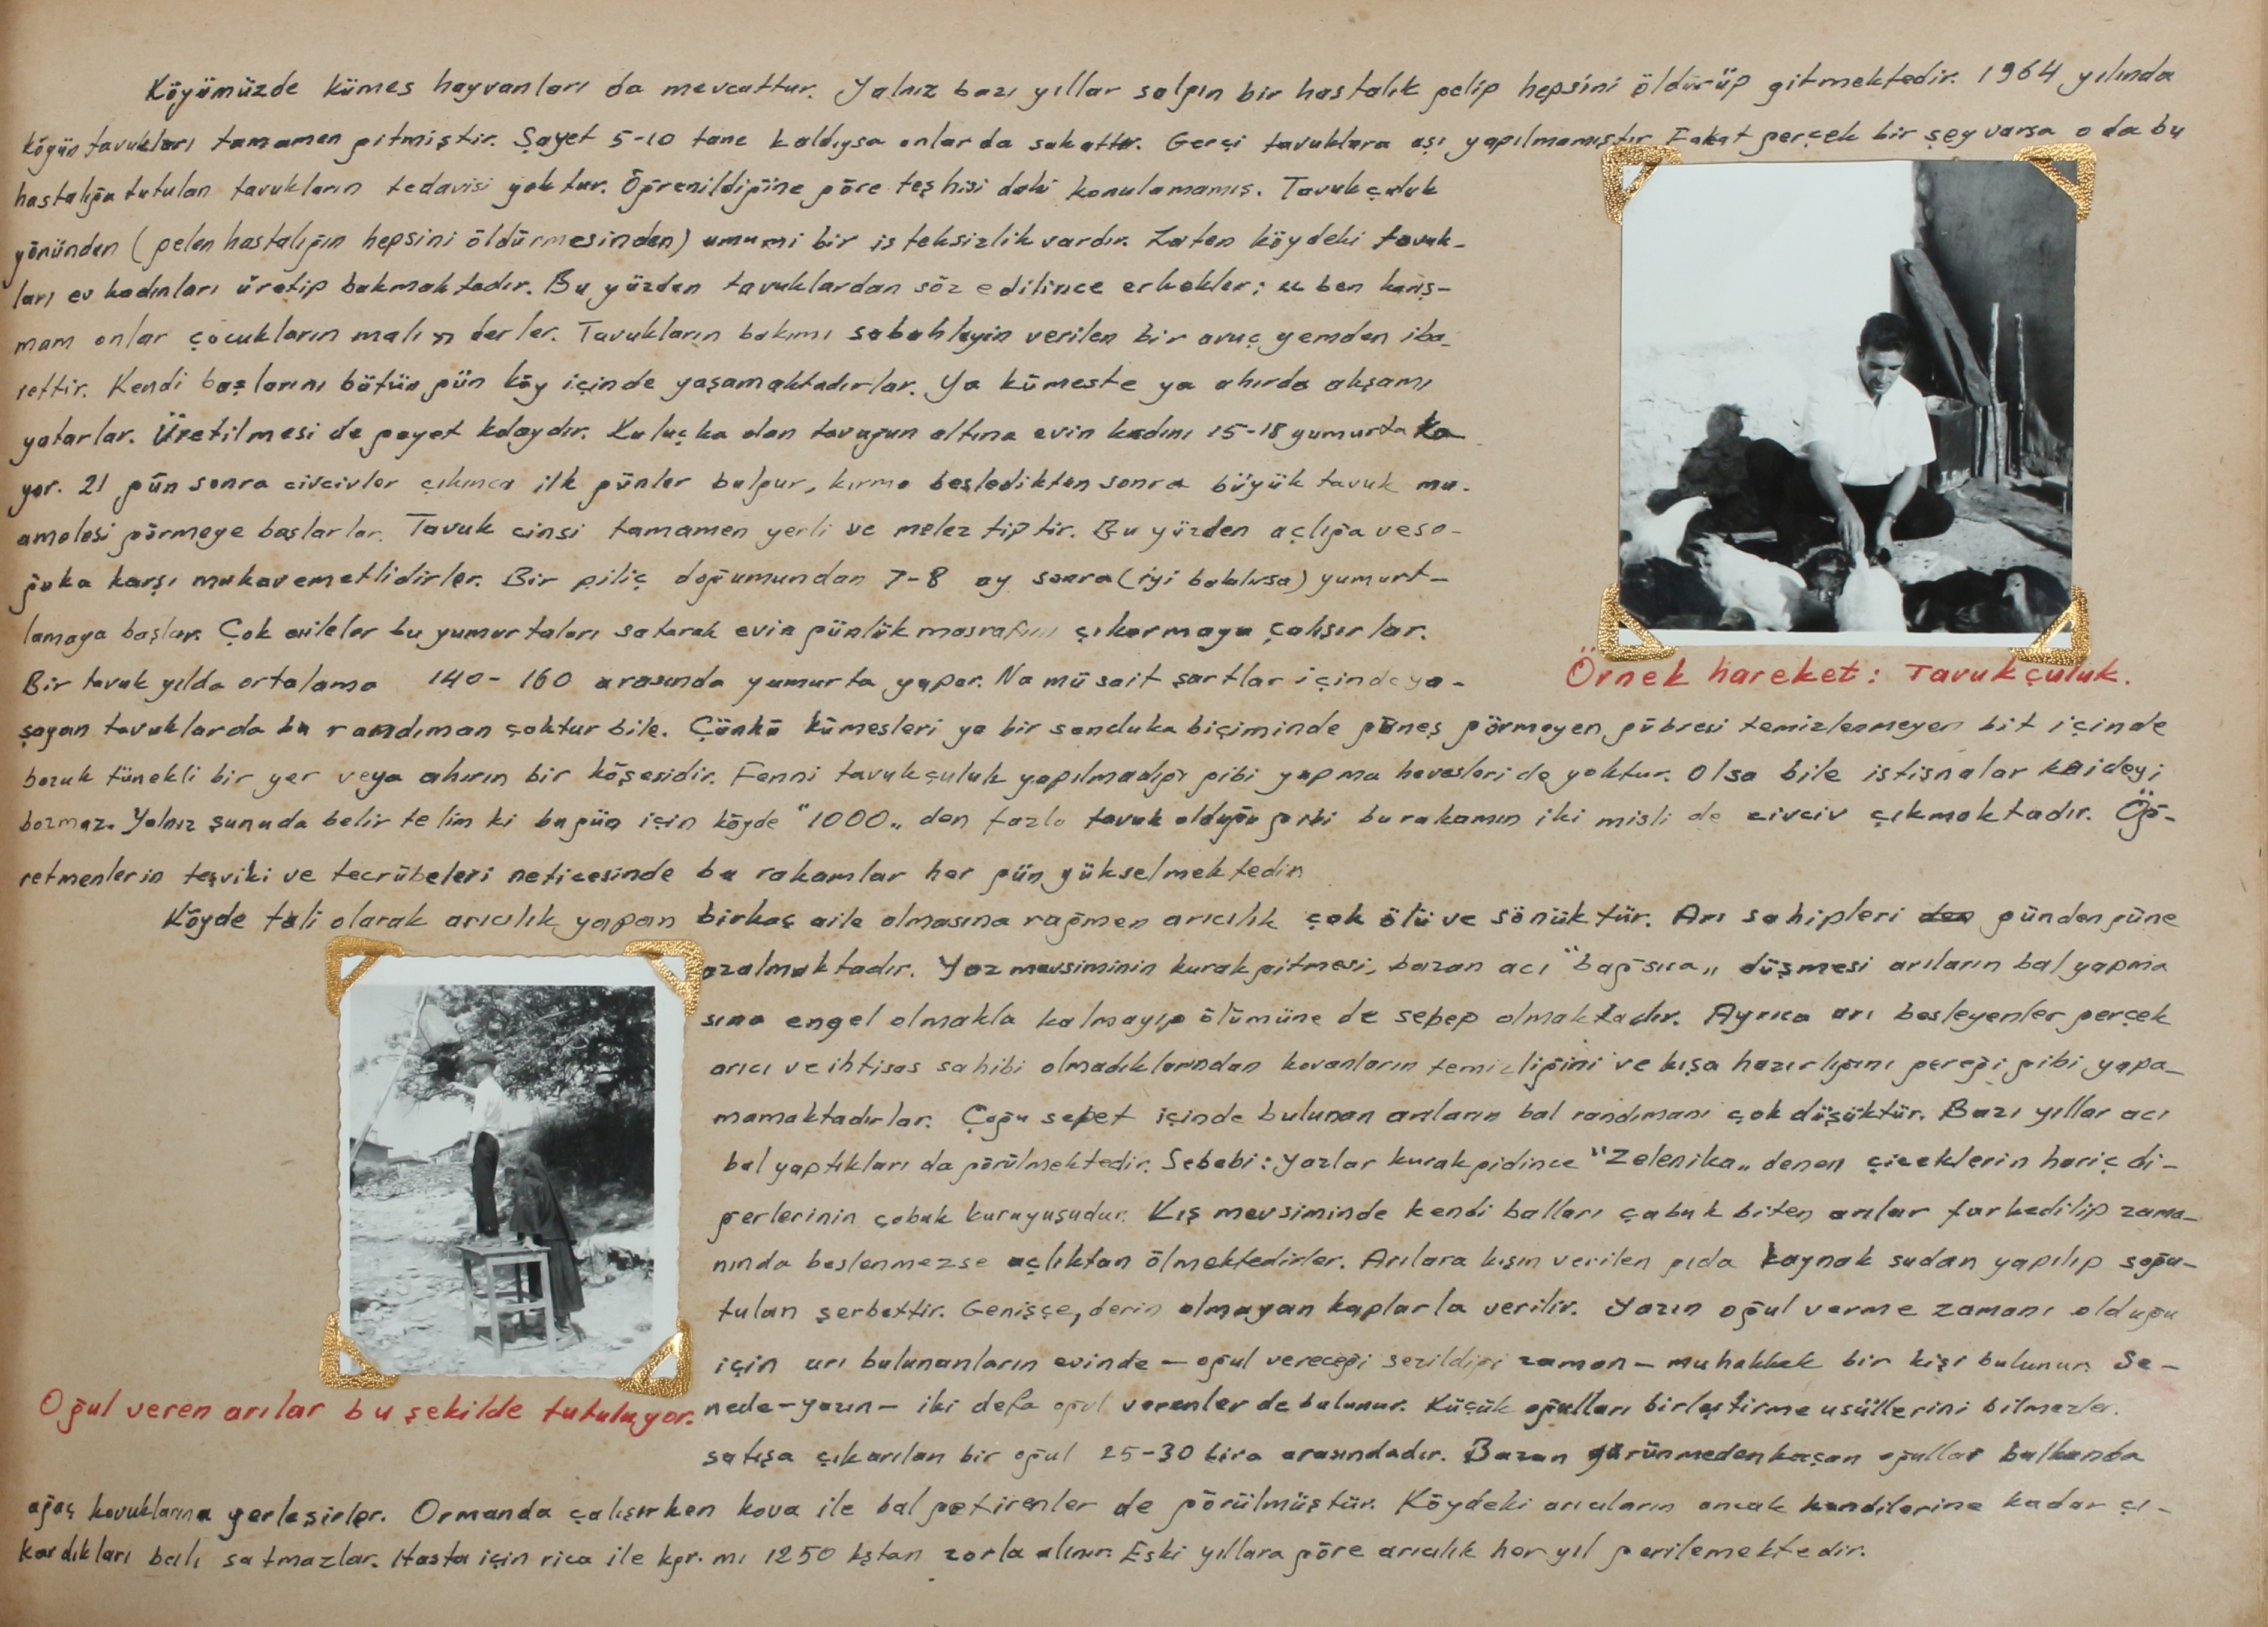 Köyümüzde kümes hayvanları da mevcuttur. Yalnız bazı yıllar salgın bir hastalık gelip hepsini öldürüp gitmektedir. 1964 yılında
köyün tavukları tamamen gitmiştir. Şayet 5-10 tane kaldıysa onlar da sakattır. Gerçi tavuklara aşı yapılmamıştır. Fakat gerçek bir şey varsa o da bu
hastalığa tutulan tavukların tedavisi yoktur. Öğrenildiğine göre teşhisi dahi konulamamış. Tavukçuluk
yönünden (gelen hastalığın hepsini öldürmesinden) umumi bir isteksizlik vardır. Zaten köydeki tavuk-
ları ev kadınları üretip bakmaktadır. Bu yüzden tavuklardan söz edilince erkekler; « ben karış-
mam onlar çocukların malı » derler. Tavukların bakımı sabahleyin verilen bir avuç yemden iba-
rettir. Kendi başlarını bütün gün köy içinde yaşamaktadırlar. Ya kümeste ya ahırda akşamı
yatarlar. Üretilmesi de gayet kolaydır. Kuluçka olan tavuğun altına evin kadını 15-18 yumurta ko
yor. 21 gün sonra civcivler çıkınca ilk günler bulgur, kırma besledikten sonra büyük tavuk mu-
amelesi görmeye başlarlar. Tavuk cinsi tamamen yerli ve melez tiptir. Bu yüzden açlığa ve so-
ğuka karşı mukavemetlidirler. Bir piliç doğumundan 7-8 ay sonra (iyi bakılırsa) yumurt-
lamaya başlar. Çok aileler bu yumurtaları satarak evin günlük masrafını çıkarmaya çalışırlar.
Bir tavuk yılda ortalama 140-160 arasında yumurta yapar. Na müsait şartlar içinde ya-
şayan tavuklarda bu randıman çoktur bile. Çünkü kümesleri ya bir sanduka biçiminde güneş görmeyen, gübresi temizlenmeyen bit içinde
bozuk tünekli bir yer veya ahırın bir köşesidir. Fenni tavukçuluk yapılmadığı gibi yapma hevesleri de yoktur. Olsa bile istisnalar kaideyi
bozmaz. Yalnız şunuda belirtelim ki bugün için köyde "1000„ den fazla tavuk olduğu gibi bu rakamın iki misli de civciv çıkmaktadır. Öğ-
retmenlerin teşviki ve tecrübeleri neticesinde bu rakamlar her gün yükselmektedir.
Örnek hareket: Tavukçuluk.
Köyde tali olarak arıcılık yapan birkaç aile olmasına rağmen arıcılık çok ölü ve sönüktür. Arı sahipleri den günden güne
azalmaktadır. Yaz mevsiminin kurak gitmesi, bazan acı "bağsıra„ düşmesi arıların bal yapma
sına engel olmakla kalmayıp ölümüne de sebep olmaktadır. Ayrıca arı besleyenler gerçek
arıcı ve ihtisas sahibi olmadıklarından kovanların temizliğini ve kışa hazırlığını gereği gibi yapa-
mamaktadırlar. Çoğu sepet içinde bulunan arıların bal randımanı çok düşüktür. Bazı yıllar acı
bal yaptıkları da görülmektedir. Sebebi: Yazlar kurak gidince "Zelenika„ denen çiceklerin hariç di-
ğerlerinin çabuk kuruyuşudur. Kış mevsiminde kendi balları çabuk biten arılar farkedilip zama-
nında beslenmezse açlıktan ölmektedirler. Arılara kışın verilen gıda kaynak sudan yapılıp soğu-
tulan şerbettir. Genişçe, derin olmayan kaplarla verilir. Yazın oğul verme zamanı olduğu
için arı bulunanların evinde — oğul vereceği sezildiği zaman — muhakkak bir kişi bulunur. Se-
nede-yazın- iki defa oğul verenler de bulunur. Küçük oğulları birleştirme usüllerini bilmezler.
satışa çıkarılan bir oğul 25-30 lira arasındadır. Bazan görünmeden kaçan oğullar balkanda
ağaç kovuklarına yerleşirler. Ormanda çalışırken kova ile bal getirenler de görülmüştür. Köydeki arıcıların ancak kendilerine kadar çı-
kardıkları balı satmazlar. Hasta için rica ile kgr. mı 1250 kştan zorla alınır. Eski yıllara göre arıcılık her yıl gerilemektedir.
Oğul veren arılar bu şekilde tutuluyor.